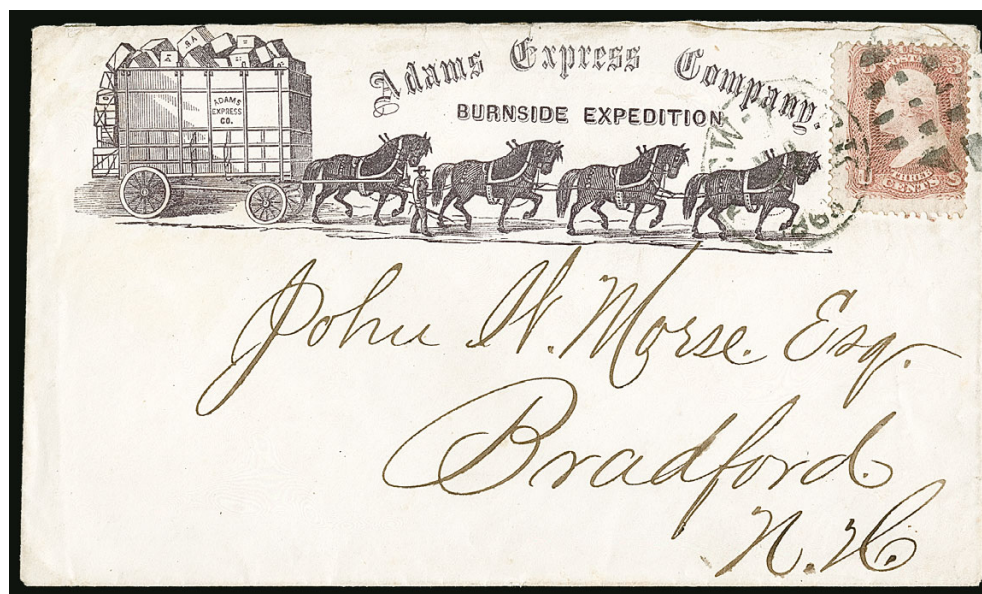 Adams Express Company.
BURNSIDE EXPEDITION
ADAMS
EXPRESS
CO.
3 3
THREE
CENTS
John W. Morse. Esq.
Bradford.
N. H.